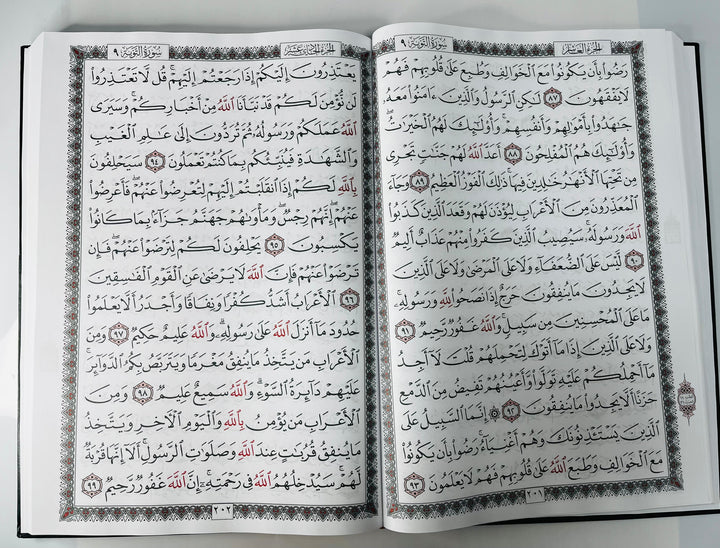 سُورَةُ التَّوْبَةِ ٩
الجُزْءُ العَاشِرُ
رَضُوا۟ بِأَن يَكُونُوا۟ مَعَ ٱلْخَوَالِفِ وَطُبِعَ عَلَىٰ قُلُوبِهِمْ فَهُمْ
لَا يَفْقَهُونَ ٨٧ لَٰكِنِ ٱلرَّسُولُ وَٱلَّذِينَ ءَامَنُوا۟ مَعَهُۥ
جَٰهَدُوا۟ بِأَمْوَٰلِهِمْ وَأَنفُسِهِمْ ۚ وَأُو۟لَٰٓئِكَ لَهُمُ ٱلْخَيْرَٰتُ ۖ
وَأُو۟لَٰٓئِكَ هُمُ ٱلْمُفْلِحُونَ ٨٨ أَعَدَّ ٱللَّهُ لَهُمْ جَنَّٰتٍ تَجْرِى
مِن تَحْتِهَا ٱلْأَنْهَٰرُ خَٰلِدِينَ فِيهَا ۚ ذَٰلِكَ ٱلْفَوْزُ ٱلْعَظِيمُ ٨٩ وَجَآءَ
ٱلْمُعَذِّرُونَ مِنَ ٱلْأَعْرَابِ لِيُؤْذَنَ لَهُمْ وَقَعَدَ ٱلَّذِينَ كَذَبُوا۟
ٱللَّهَ وَرَسُولَهُۥ ۚ سَيُصِيبُ ٱلَّذِينَ كَفَرُوا۟ مِنْهُمْ عَذَابٌ أَلِيمٌ
٩٠ لَّيْسَ عَلَى ٱلضُّعَفَآءِ وَلَا عَلَى ٱلْمَرْضَىٰ وَلَا عَلَى ٱلَّذِينَ
لَا يَجِدُونَ مَا يُنفِقُونَ حَرَجٌ إِذَا نَصَحُوا۟ لِلَّهِ وَرَسُولِهِۦ ۚ
مَا عَلَى ٱلْمُحْسِنِينَ مِن سَبِيلٍ ۚ وَٱللَّهُ غَفُورٌ رَّحِيمٌ ٩١
وَلَا عَلَى ٱلَّذِينَ إِذَا مَآ أَتَوْكَ لِتَحْمِلَهُمْ قُلْتَ لَآ أَجِدُ
مَآ أَحْمِلُكُمْ عَلَيْهِ تَوَلَّوا۟ وَّأَعْيُنُهُمْ تَفِيضُ مِنَ ٱلدَّمْعِ
حَزَنًا أَلَّا يَجِدُوا۟ مَا يُنفِقُونَ ٩٢ ۞ إِنَّمَا ٱلسَّبِيلُ عَلَى
ٱلَّذِينَ يَسْتَـْٔذِنُونَكَ وَهُمْ أَغْنِيَآءُ ۚ رَضُوا۟ بِأَن يَكُونُوا۟
مَعَ ٱلْخَوَالِفِ وَطَبَعَ ٱللَّهُ عَلَىٰ قُلُوبِهِمْ فَهُمْ لَا يَعْلَمُونَ ٩٣
٢٠١
سُورَةُ التَّوْبَةِ ٩
الجُزْءُ الحَادِي عَشَرَ
يَعْتَذِرُونَ إِلَيْكُمْ إِذَا رَجَعْتُمْ إِلَيْهِمْ ۚ قُل لَّا تَعْتَذِرُوا۟
لَن نُّؤْمِنَ لَكُمْ قَدْ نَبَّأَنَا ٱللَّهُ مِنْ أَخْبَارِكُمْ ۚ وَسَيَرَى
ٱللَّهُ عَمَلَكُمْ وَرَسُولُهُۥ ثُمَّ تُرَدُّونَ إِلَىٰ عَٰلِمِ ٱلْغَيْبِ
وَٱلشَّهَٰدَةِ فَيُنَبِّئُكُم بِمَا كُنتُمْ تَعْمَلُونَ ٩٤ سَيَحْلِفُونَ
بِٱللَّهِ لَكُمْ إِذَا ٱنقَلَبْتُمْ إِلَيْهِمْ لِتُعْرِضُوا۟ عَنْهُمْ ۖ فَأَعْرِضُوا۟
عَنْهُمْ ۖ إِنَّهُمْ رِجْسٌ ۖ وَمَأْوَىٰهُمْ جَهَنَّمُ جَزَآءًۢ بِمَا كَانُوا۟
يَكْسِبُونَ ٩٥ يَحْلِفُونَ لَكُمْ لِتَرْضَوْا۟ عَنْهُمْ ۖ فَإِن
تَرْضَوْا۟ عَنْهُمْ فَإِنَّ ٱللَّهَ لَا يَرْضَىٰ عَنِ ٱلْقَوْمِ ٱلْفَٰسِقِينَ
٩٦ ٱلْأَعْرَابُ أَشَدُّ كُفْرًا وَنِفَاقًا وَأَجْدَرُ أَلَّا يَعْلَمُوا۟
حُدُودَ مَآ أَنزَلَ ٱللَّهُ عَلَىٰ رَسُولِهِۦ ۗ وَٱللَّهُ عَلِيمٌ حَكِيمٌ ٩٧ وَمِنَ
ٱلْأَعْرَابِ مَن يَتَّخِذُ مَا يُنفِقُ مَغْرَمًا وَيَتَرَبَّصُ بِكُمُ ٱلدَّوَآئِرَ ۚ
عَلَيْهِمْ دَآئِرَةُ ٱلسَّوْءِ ۗ وَٱللَّهُ سَمِيعٌ عَلِيمٌ ٩٨ وَمِنَ
ٱلْأَعْرَابِ مَن يُؤْمِنُ بِٱللَّهِ وَٱلْيَوْمِ ٱلْءَاخِرِ وَيَتَّخِذُ
مَا يُنفِقُ قُرُبَٰتٍ عِندَ ٱللَّهِ وَصَلَوَٰتِ ٱلرَّسُولِ ۚ أَلَآ إِنَّهَا قُرْبَةٌ
لَّهُمْ ۚ سَيُدْخِلُهُمُ ٱللَّهُ فِى رَحْمَتِهِۦٓ ۗ إِنَّ ٱللَّهَ غَفُورٌ رَّحِيمٌ ٩٩
٢٠٢